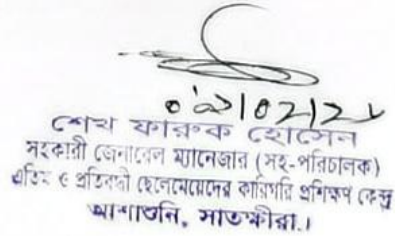 শেখ ফারুক হোসেন
সহকারী জেনারেল ম্যানেজার (সহ-পরিচালক)
এতিম ও প্রতিবন্ধী ছেলেমেয়েদের কারিগরি প্রশিক্ষণ কেন্দ্র
আশাশুনি, সাতক্ষীরা।